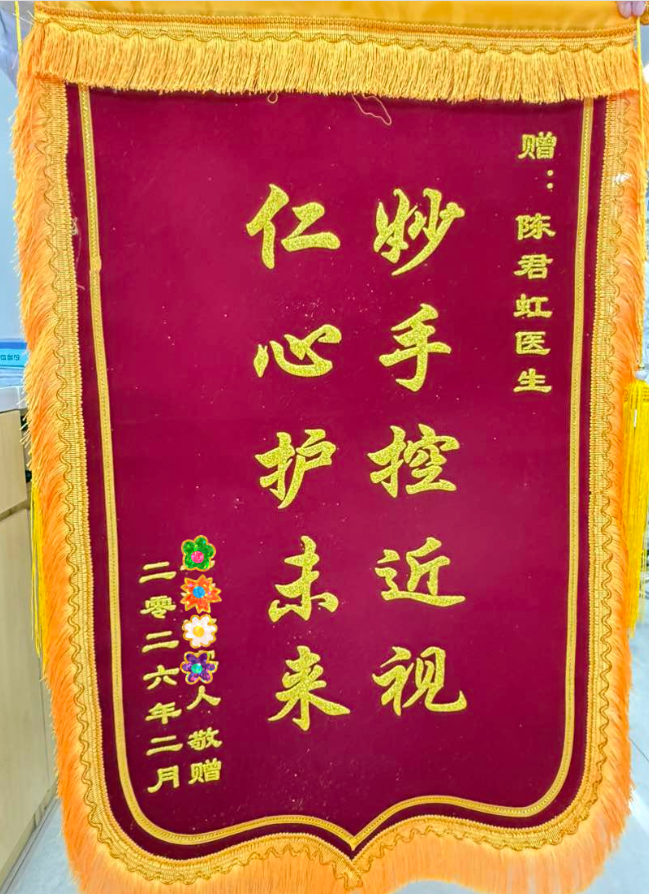 赠：陈君虹医生
妙手控近视
仁心护未来
人敬赠
二零二六年二月